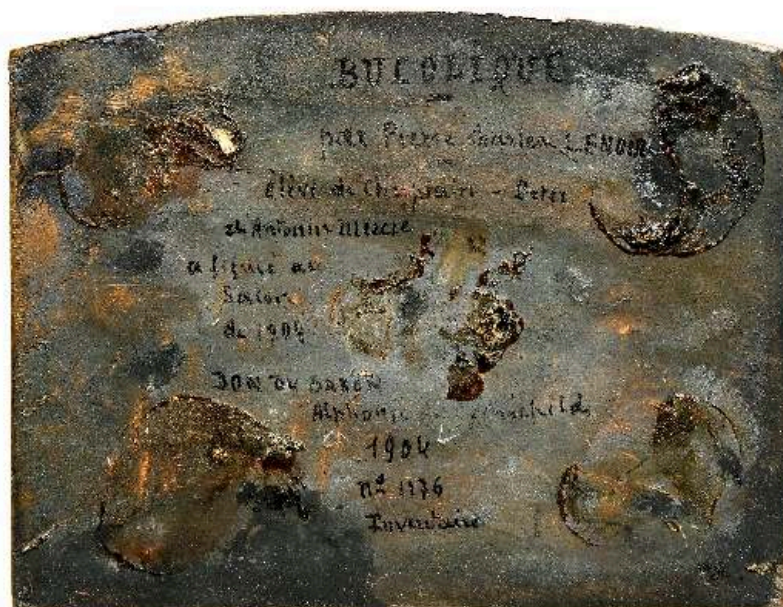 BUCOLIQUE
par Pierre Charles LENOIR
élève de Chaplain - Peter
et Antonin Mercié
a figuré au
Salon
de 1904
DON DU BARON
Alphonse de Rothschild
1904
nº 1176
Inventaire